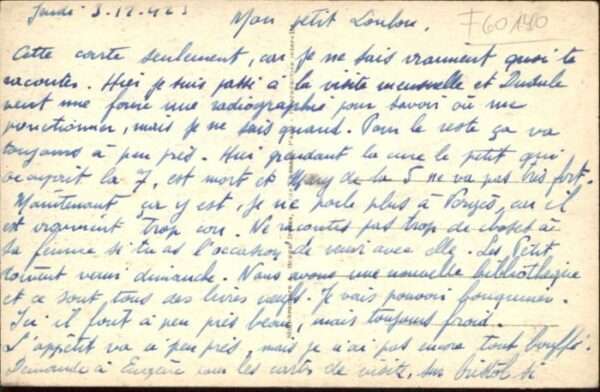 Jeudi 3-12-42
Mon petit Loulou.
F60190
Cette carte seulement, car je ne sais vraiment quoi te
raconter. Hier je suis passé à la visite mensuelle et Dudule
veut me faire une radiographie pour savoir où me
ponctionner, mais je ne sais quand. Pour le reste ça va
toujours à peu près. Hier pendant la cure le petit qui
occupait la 7, est mort et Mary de la 5 ne va pas très fort.
Maintenant ça y est, je ne parle plus à car il
est vraiment trop con. Ne racontes pas trop de choses à
sa femme si tu as l'occasion de venir avec elle. Les Petit
sont venus dimanche. Nous avons une nouvelle bibliothèque
et ce sont tous des livres neufs. Je vais pouvoir bouquiner.
Ici il fait à peu près beau, mais toujours froid.
L'appétit va à peu près, mais je n'ai pas encore tout bouffé.
Demande à Eugène pour les cartes de visite, sur bristol si